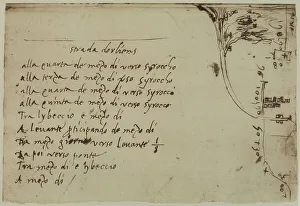 strada dorliens
alla quarta de mezo di verso syroccho
alla terza de mezo di vso syroccho
alla quarta de mezo di verso syrocco
alla quinta de mezo di verso syrocco
Tra lybeccio e mezo di
A levante pticipando de mezo di
Tra mezo giorno verso levante 1/8
Da poi verso ponte
Tra mezo di e lybeccio
A mezo di